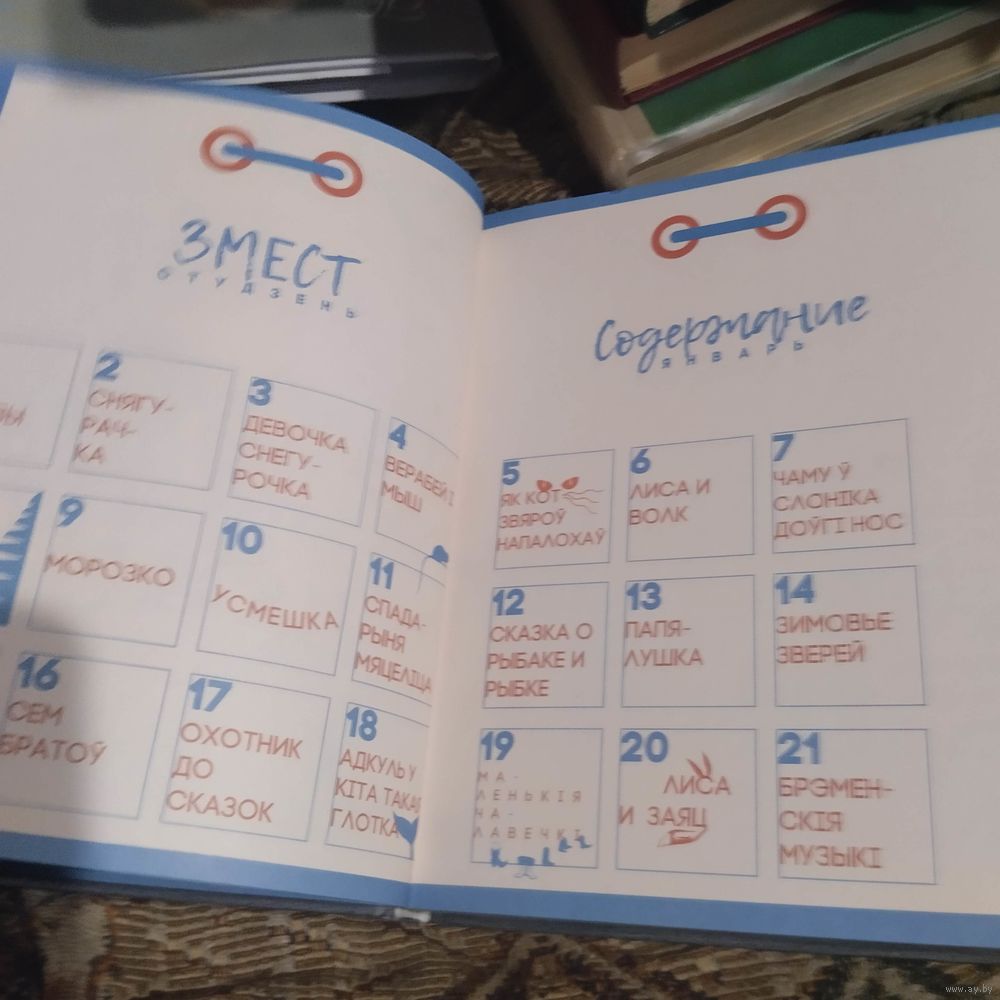 ЗМЕСТ
СТУДЗЕНЬ
2
СНЯГУ-
РАЧ-
КА
3
ДЕВОЧКА
СНЕГУ-
РОЧКА
4
ВЕРАБЕЙ І
МЫШ
9
МОРОЗКО
10
УСМЕШКА
11
СПАДА-
РЫНЯ
МЯЦЕЛІЦА
16
СЕМ
БРАТОЎ
17
ОХОТНИК
ДО
СКАЗОК
18
АДКУЛЬ У
КІТА ТАКАЯ
ГЛОТКА
Содержание
ЯНВАРЬ
5
ЯК КОТ
ЗВЯРОЎ
НАПАЛОХАЎ
6
ЛИСА И
ВОЛК
7
ЧАМУ Ў
СЛОНІКА
ДОЎГІ НОС
12
СКАЗКА О
РЫБАКЕ И
РЫБКЕ
13
ПАПЯ-
ЛУШКА
14
ЗИМОВЬЕ
ЗВЕРЕЙ
19
МА-
ЛЕНЬКІЯ
ЧА-
ЛАВЕЧКІ
20
ЛИСА
И ЗАЯЦ
21
БРЭМЕН-
СКІЯ
МУЗЫКІ
www.ay.by